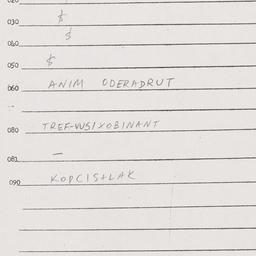 020
030 $
$
040
050 $
060 ANIM ODERADRUT
080 TREF-VUS/XOBINANT
081 —
090 KOPCISTLAK